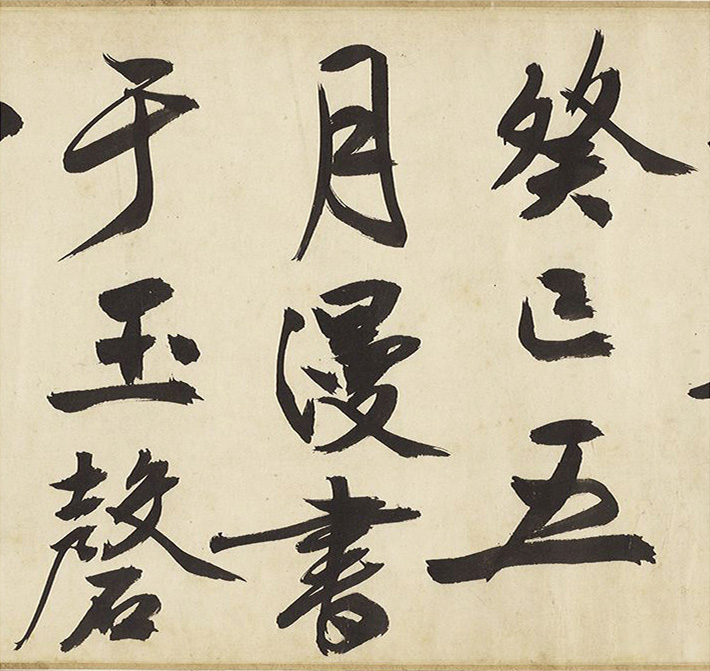 癸巳五
月漫書
于玉磬